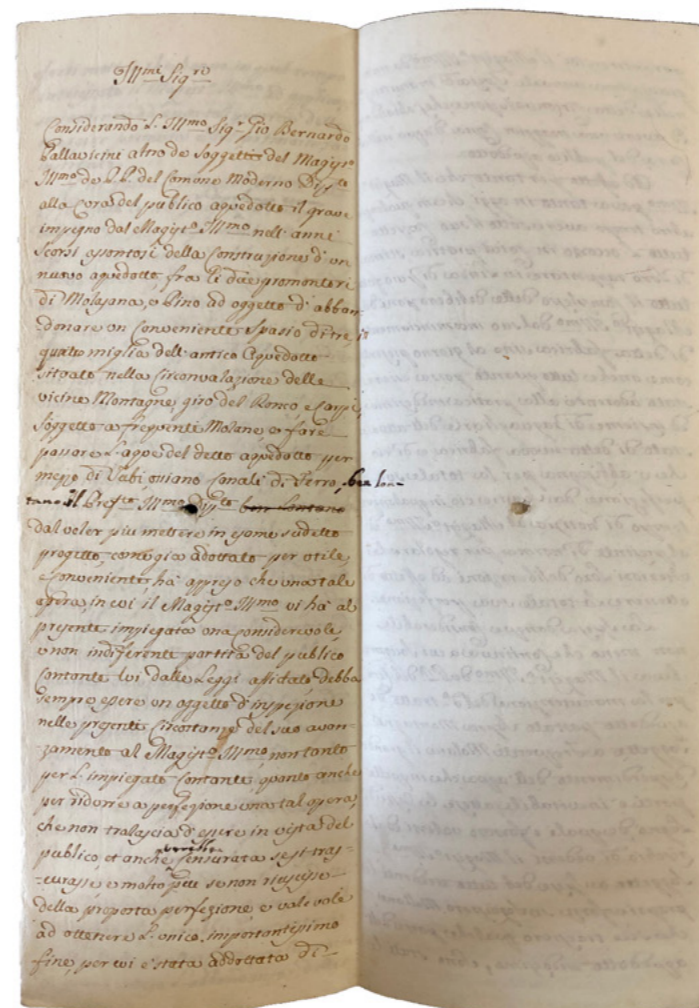 Ill.mi Sig.ri
Considerando L'Ill.mo Sig.r Gio Bernardo
Pallavicini altro de Soggetti del Magis.to
Ill.mo de P.P. del Comune Moderno Dip.to
alla Cura del publico aquedotto il grave
impegno dal Magist.o Ill.mo nell'anni
scorsi assontosi della Construzione d'un
nuovo aquedotto, fra li due promontori
di Molassana, e Pino ad oggetto d'abban
donare un Conveniente spasio di tre in
quatro miglia dell'antico Aquedotto
situato nella Circonvalazione delle
vicine Montagne, giro del Ronco, e
soggetto a frequenti Molane, e fare
passare L'aque del detto aquedotto per
mezzo di Tubi, osiano Canali di Ferro, ben lon-
tano il Pref.to Ill.mo Dip.to ben lontano
dal voler piu mettere in esame sudetto
progetto, come gia adottato per utile,
e conveniente, ha appreso che una tale
opera in cui il Magist.o Ill.mo vi ha al
presente impiegata una considerevole,
e non indiferente partita del publico
Contante lui dalle Leggi affidato debba
sempre essere un oggetto d'inspezione
nelle presenti Circostanze del suo avan-
-zamento al Magist.o Ill.mo non tanto
per L'impiegato Contante, quanto anche
per ridurre a perfezione una tal opera,
che non tralascia d'essere in vista del
publico, et anche verebbe censurata se si tras-
-curasse e molto piu se non riuscisse
della proposta perfezione e valevole
ad ottenere L'unico, importantissimo
fine, per cui è stata addottata di